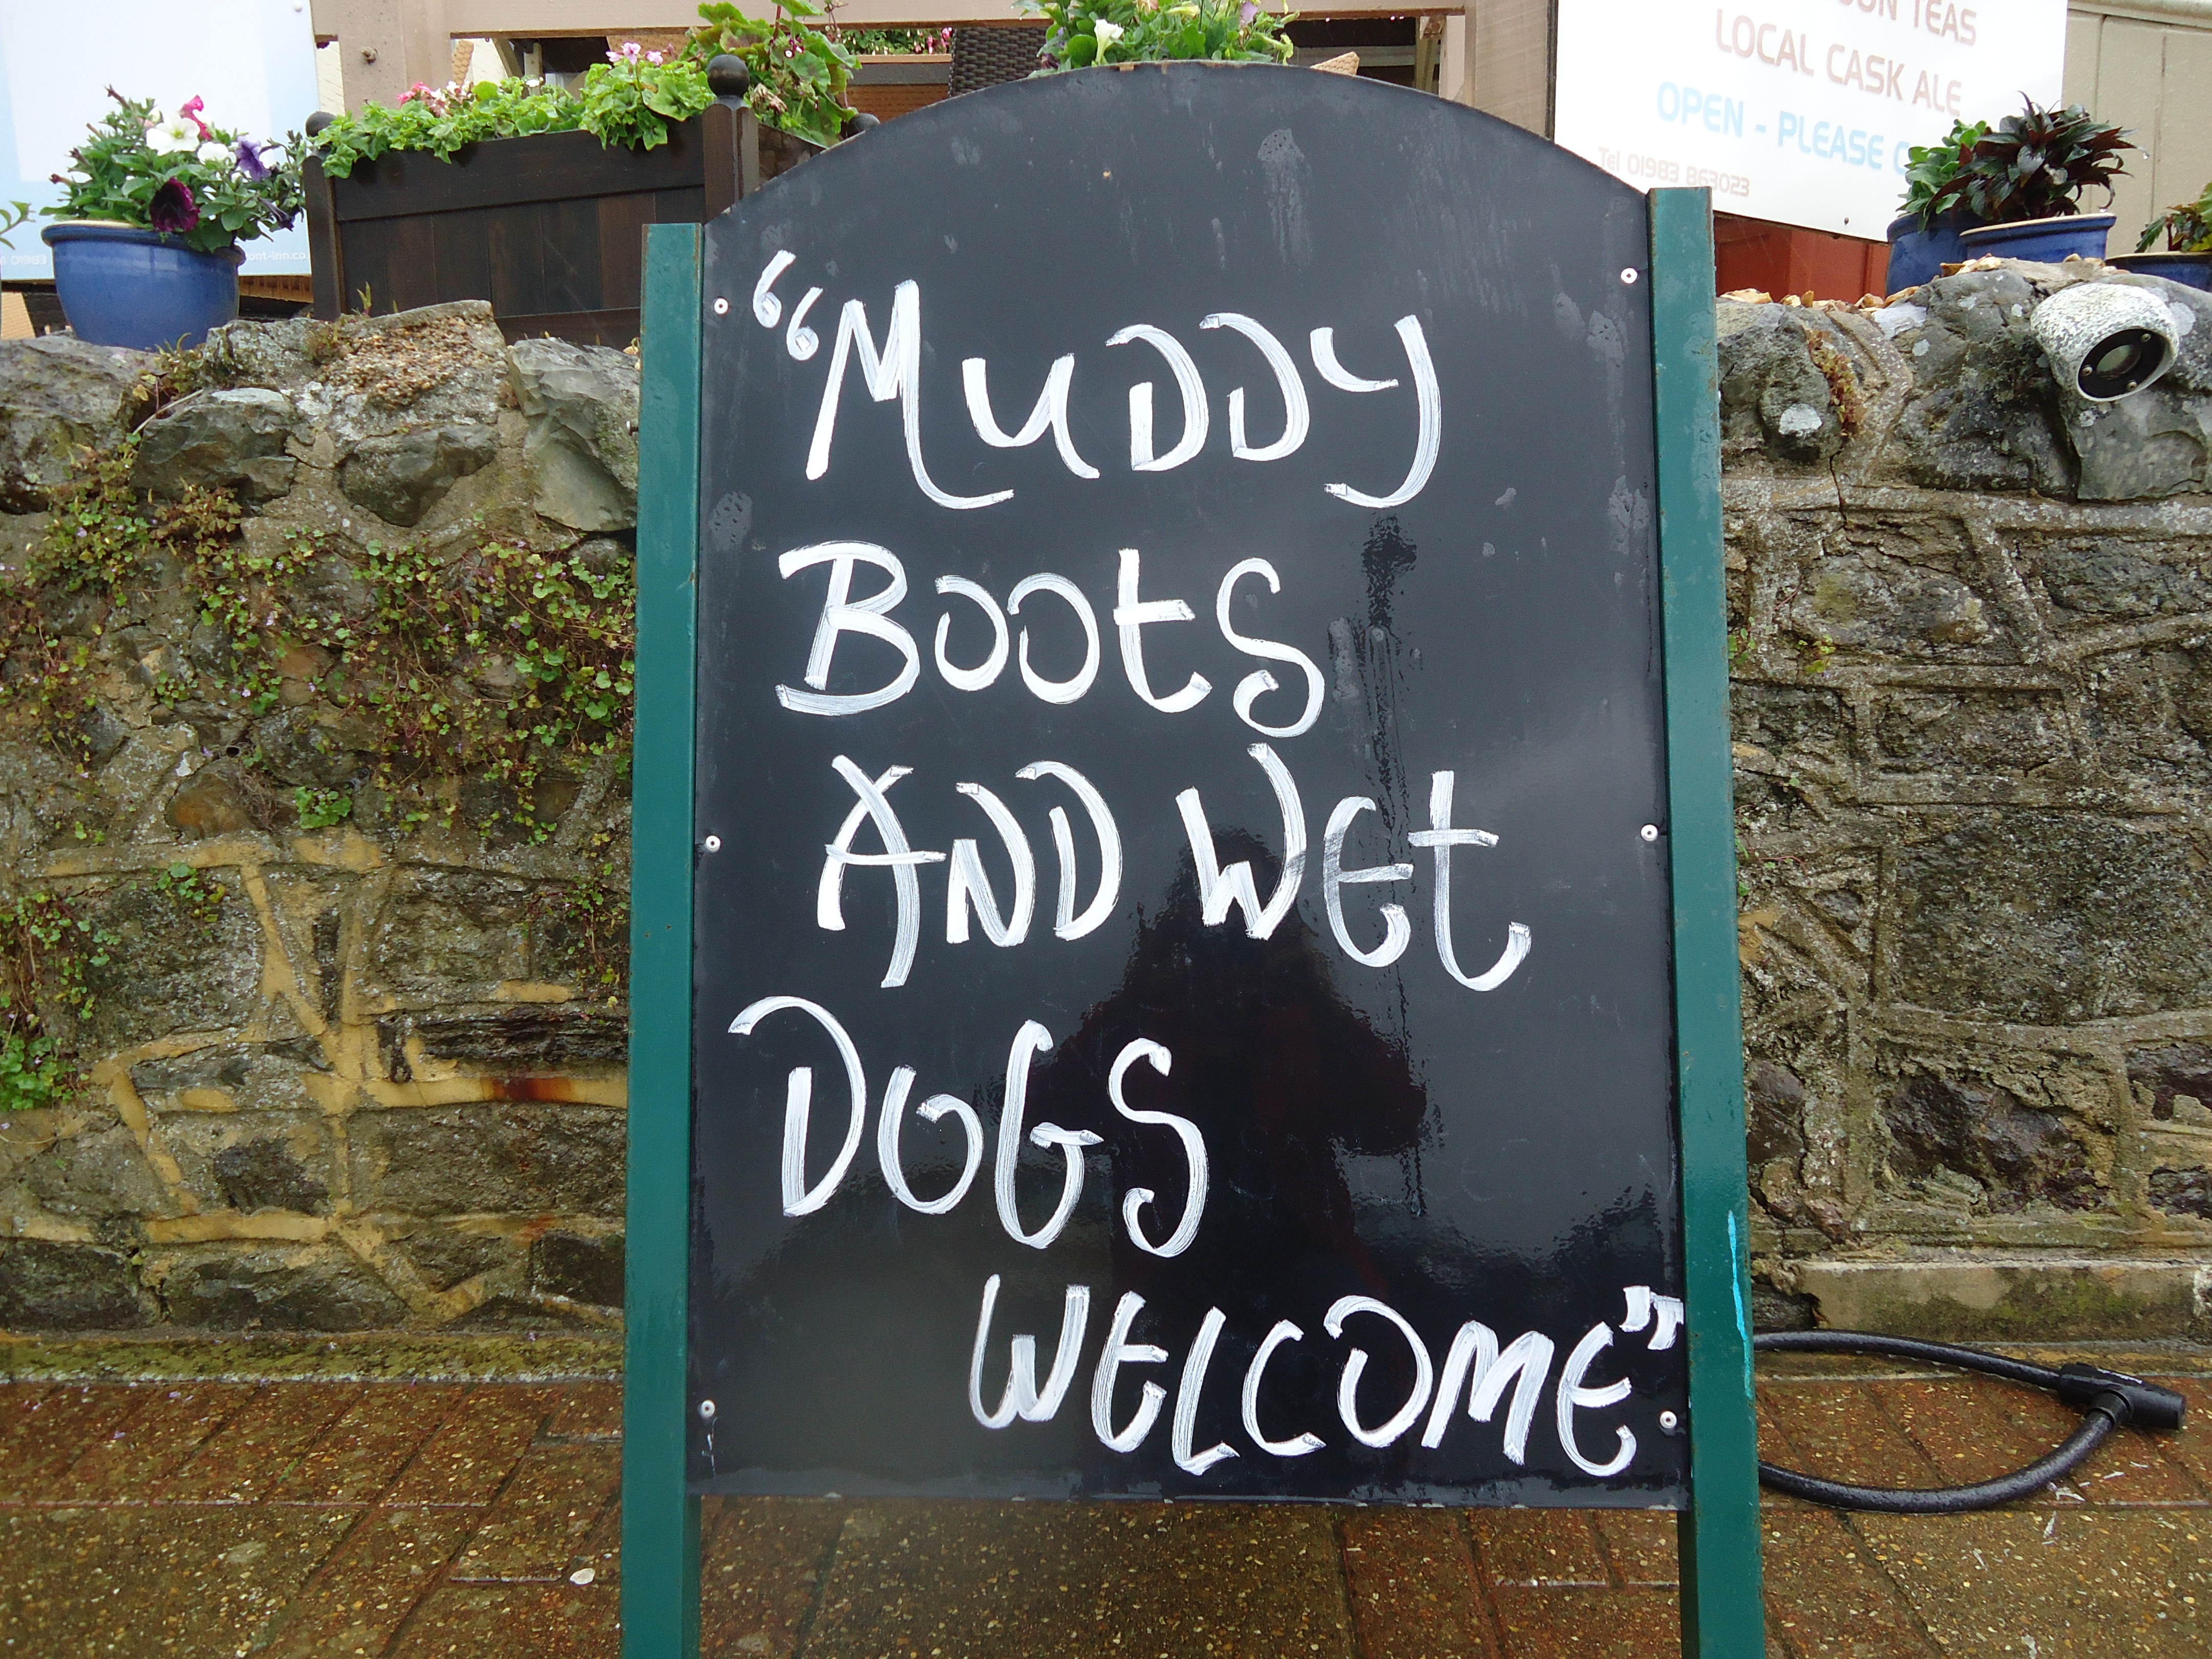 TEAS
LOCAL CASK ALE
OPEN - PLEASE
Tel 01983 863023
“MUDDY
BOOTS
AND WET
DOGS
WELCOME”